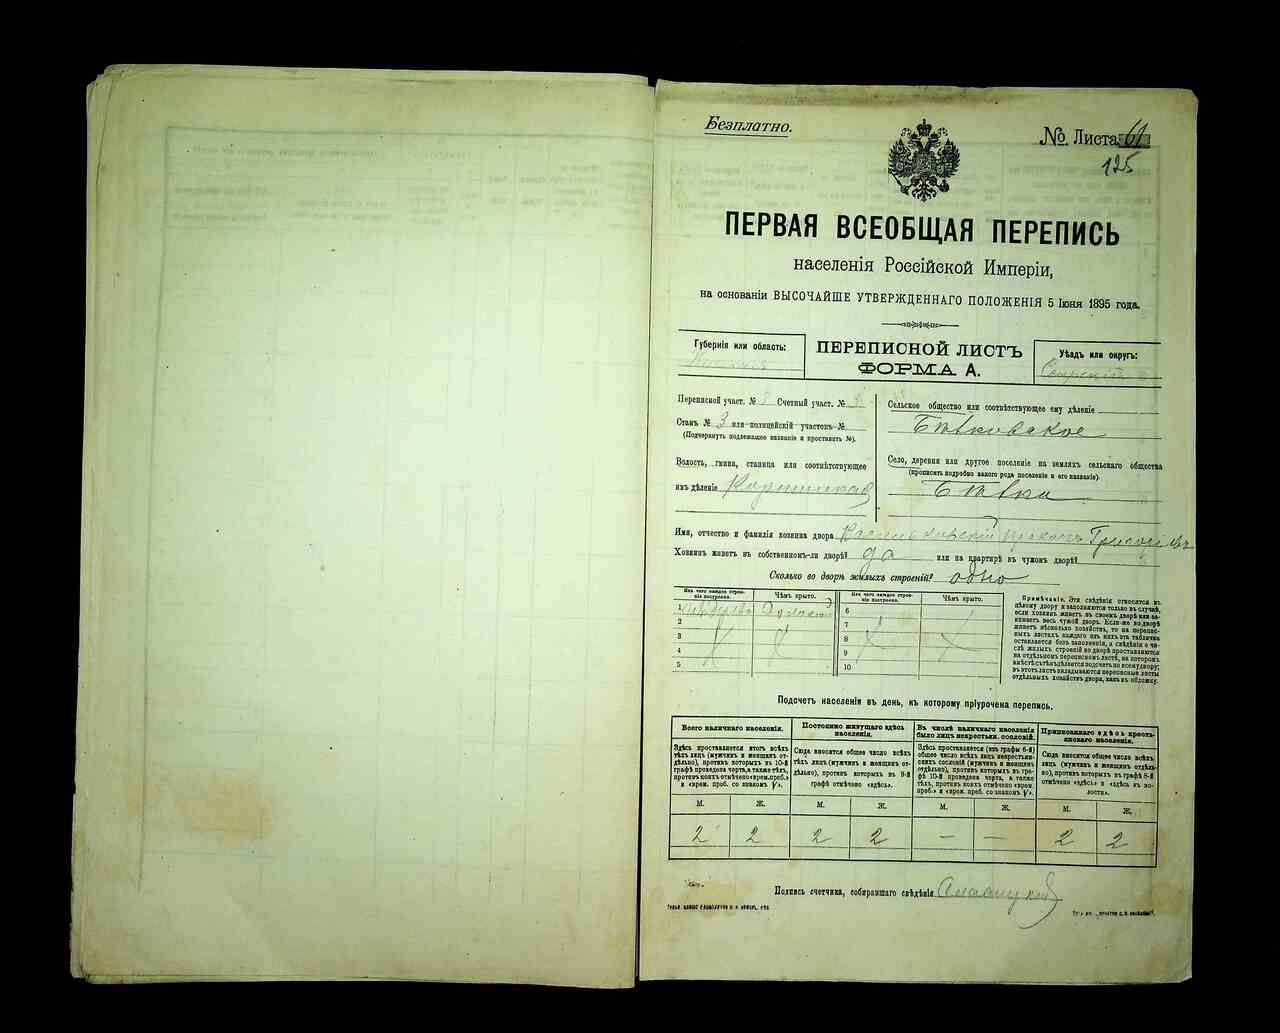 Безплатно.
№ Листа 61
125
ПЕРВАЯ ВСЕОБЩАЯ ПЕРЕПИСЬ
населенія Россійской Имперіи,
на основаніи ВЫСОЧАЙШЕ УТВЕРЖДЕННАГО ПОЛОЖЕНІЯ 5 Іюня 1895 года.
Губернія или область:
ПЕРЕПИСНОЙ ЛИСТЪ
ФОРМА А.
Уѣздъ или округъ:
Переписной участ. № Счетный участ. №
Станъ № 3 или полицейскій участокъ №
(Подчеркнуть подлежащее названіе и проставить №).
Волость, гмина, станица или соотвѣтствующее
имъ дѣленіе
Сельское общество или соотвѣтствующее ему дѣленіе
Село, деревня или другое поселеніе на земляхъ сельскаго общества
(прописать подробно какого рода поселеніе и его названіе).
Имя, отчество и фамилія хозяина двора
Хозяинъ живетъ въ собственномъ-ли дворѣ? да или на квартирѣ въ чужомъ дворѣ?
Сколько во дворѣ жилыхъ строеній? одно
Изъ чего каждое строеніе построено. Чѣмъ крыто. Изъ чего каждое строеніе построено. Чѣмъ крыто.
1 6
2 7
3 8
4 9
5 10
Примѣчаніе. Эти свѣдѣнія относятся къ
цѣлому двору и заполняются только въ случаѣ,
если хозяинъ живетъ въ своемъ дворѣ или занимаетъ
весь чужой дворъ. Если-же во дворѣ
живетъ нѣсколько хозяйствъ, то на переписныхъ
листахъ каждаго изъ нихъ эта табличка
оставляется безъ заполненія, а свѣдѣнія о числѣ
жилыхъ строеній во дворѣ проставляются
на отдѣльномъ переписномъ листѣ, на которомъ
вмѣстѣ съ тѣмъ дѣлается подсчетъ по всему двору;
въ этотъ листъ вкладываются переписные листы
отдѣльныхъ хозяйствъ двора, какъ въ обложку.
Подсчетъ населенія въ день, къ которому пріурочена перепись.
Всего наличнаго населенія.
Здѣсь проставляется итогъ всѣхъ
лицъ (мужчинъ и женщинъ отдѣльно),
противъ которыхъ въ 10-й
графѣ проведена черта, а также тѣхъ,
противъ коихъ отмѣчено «врем. преб.»
и «врем. преб. со знакомъ V».
Постоянно живущаго здѣсь населенія.
Сюда вносится общее число всѣхъ
тѣхъ лицъ (мужчинъ и женщинъ отдѣльно),
противъ которыхъ въ 9-й
графѣ отмѣчено «здѣсь».
Въ числѣ наличнаго населенія
было лицъ некрестьян. сословій.
Здѣсь проставляется (изъ графы 6-й)
общее число всѣхъ лицъ некрестьянскихъ
сословій (мужчинъ и женщинъ
отдѣльно), противъ которыхъ въ графѣ
10-й проведена черта, а также
тѣхъ, противъ коихъ отмѣчено «врем.
преб.» и «врем. преб. со знакомъ V».
Приписаннаго здѣсь крестьянскаго населенія.
Сюда вносится общее число всѣхъ
лицъ (мужчинъ и женщинъ отдѣльно),
противъ которыхъ въ графѣ 8-й
отмѣчено «здѣсь» и «здѣсь въ волости».
М. Ж. М. Ж. М. Ж. М. Ж.
2 2 2 2 — — 2 2
Подпись счетчика, собиравшаго свѣдѣнія